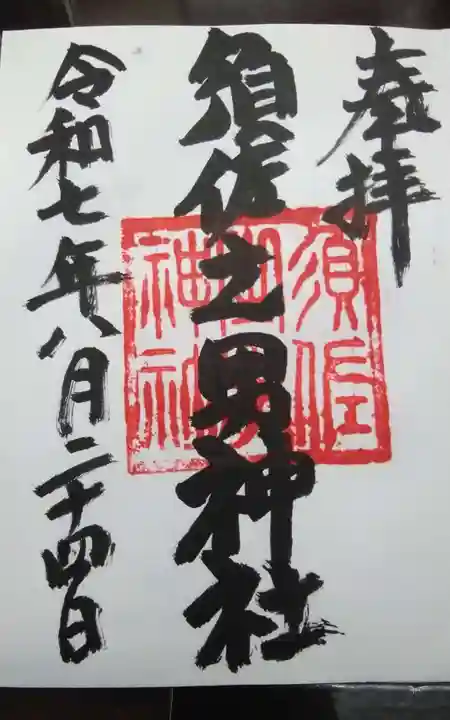 奉拝
須佐之男神社
須佐
之男
神社
令和七年八月二十四日